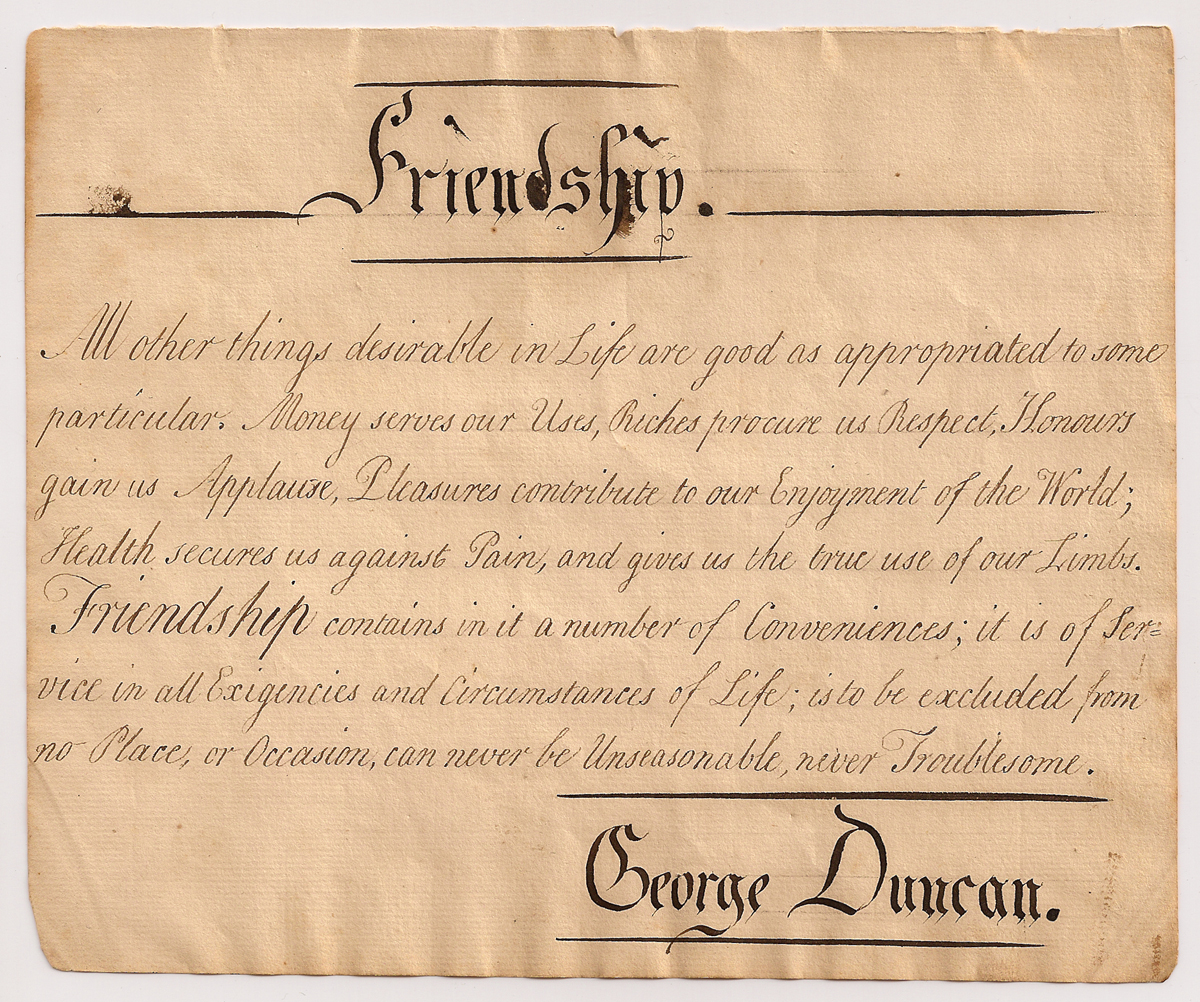 Friendship.
All other things desirable in Life are good as appropriated to some
particular. Money serves our Uses, Riches procure us Respect, Honours
gain us Applause, Pleasures contribute to our Enjoyment of the World;
Health secures us against Pain, and gives us the true use of our Limbs.
Friendship contains in it a number of Conveniences; it is of Ser=
vice in all Exigencies and Circumstances of Life; is to be excluded from
no Place, or Occasion, can never be Unseasonable, never Troublesome.
George Duncan.